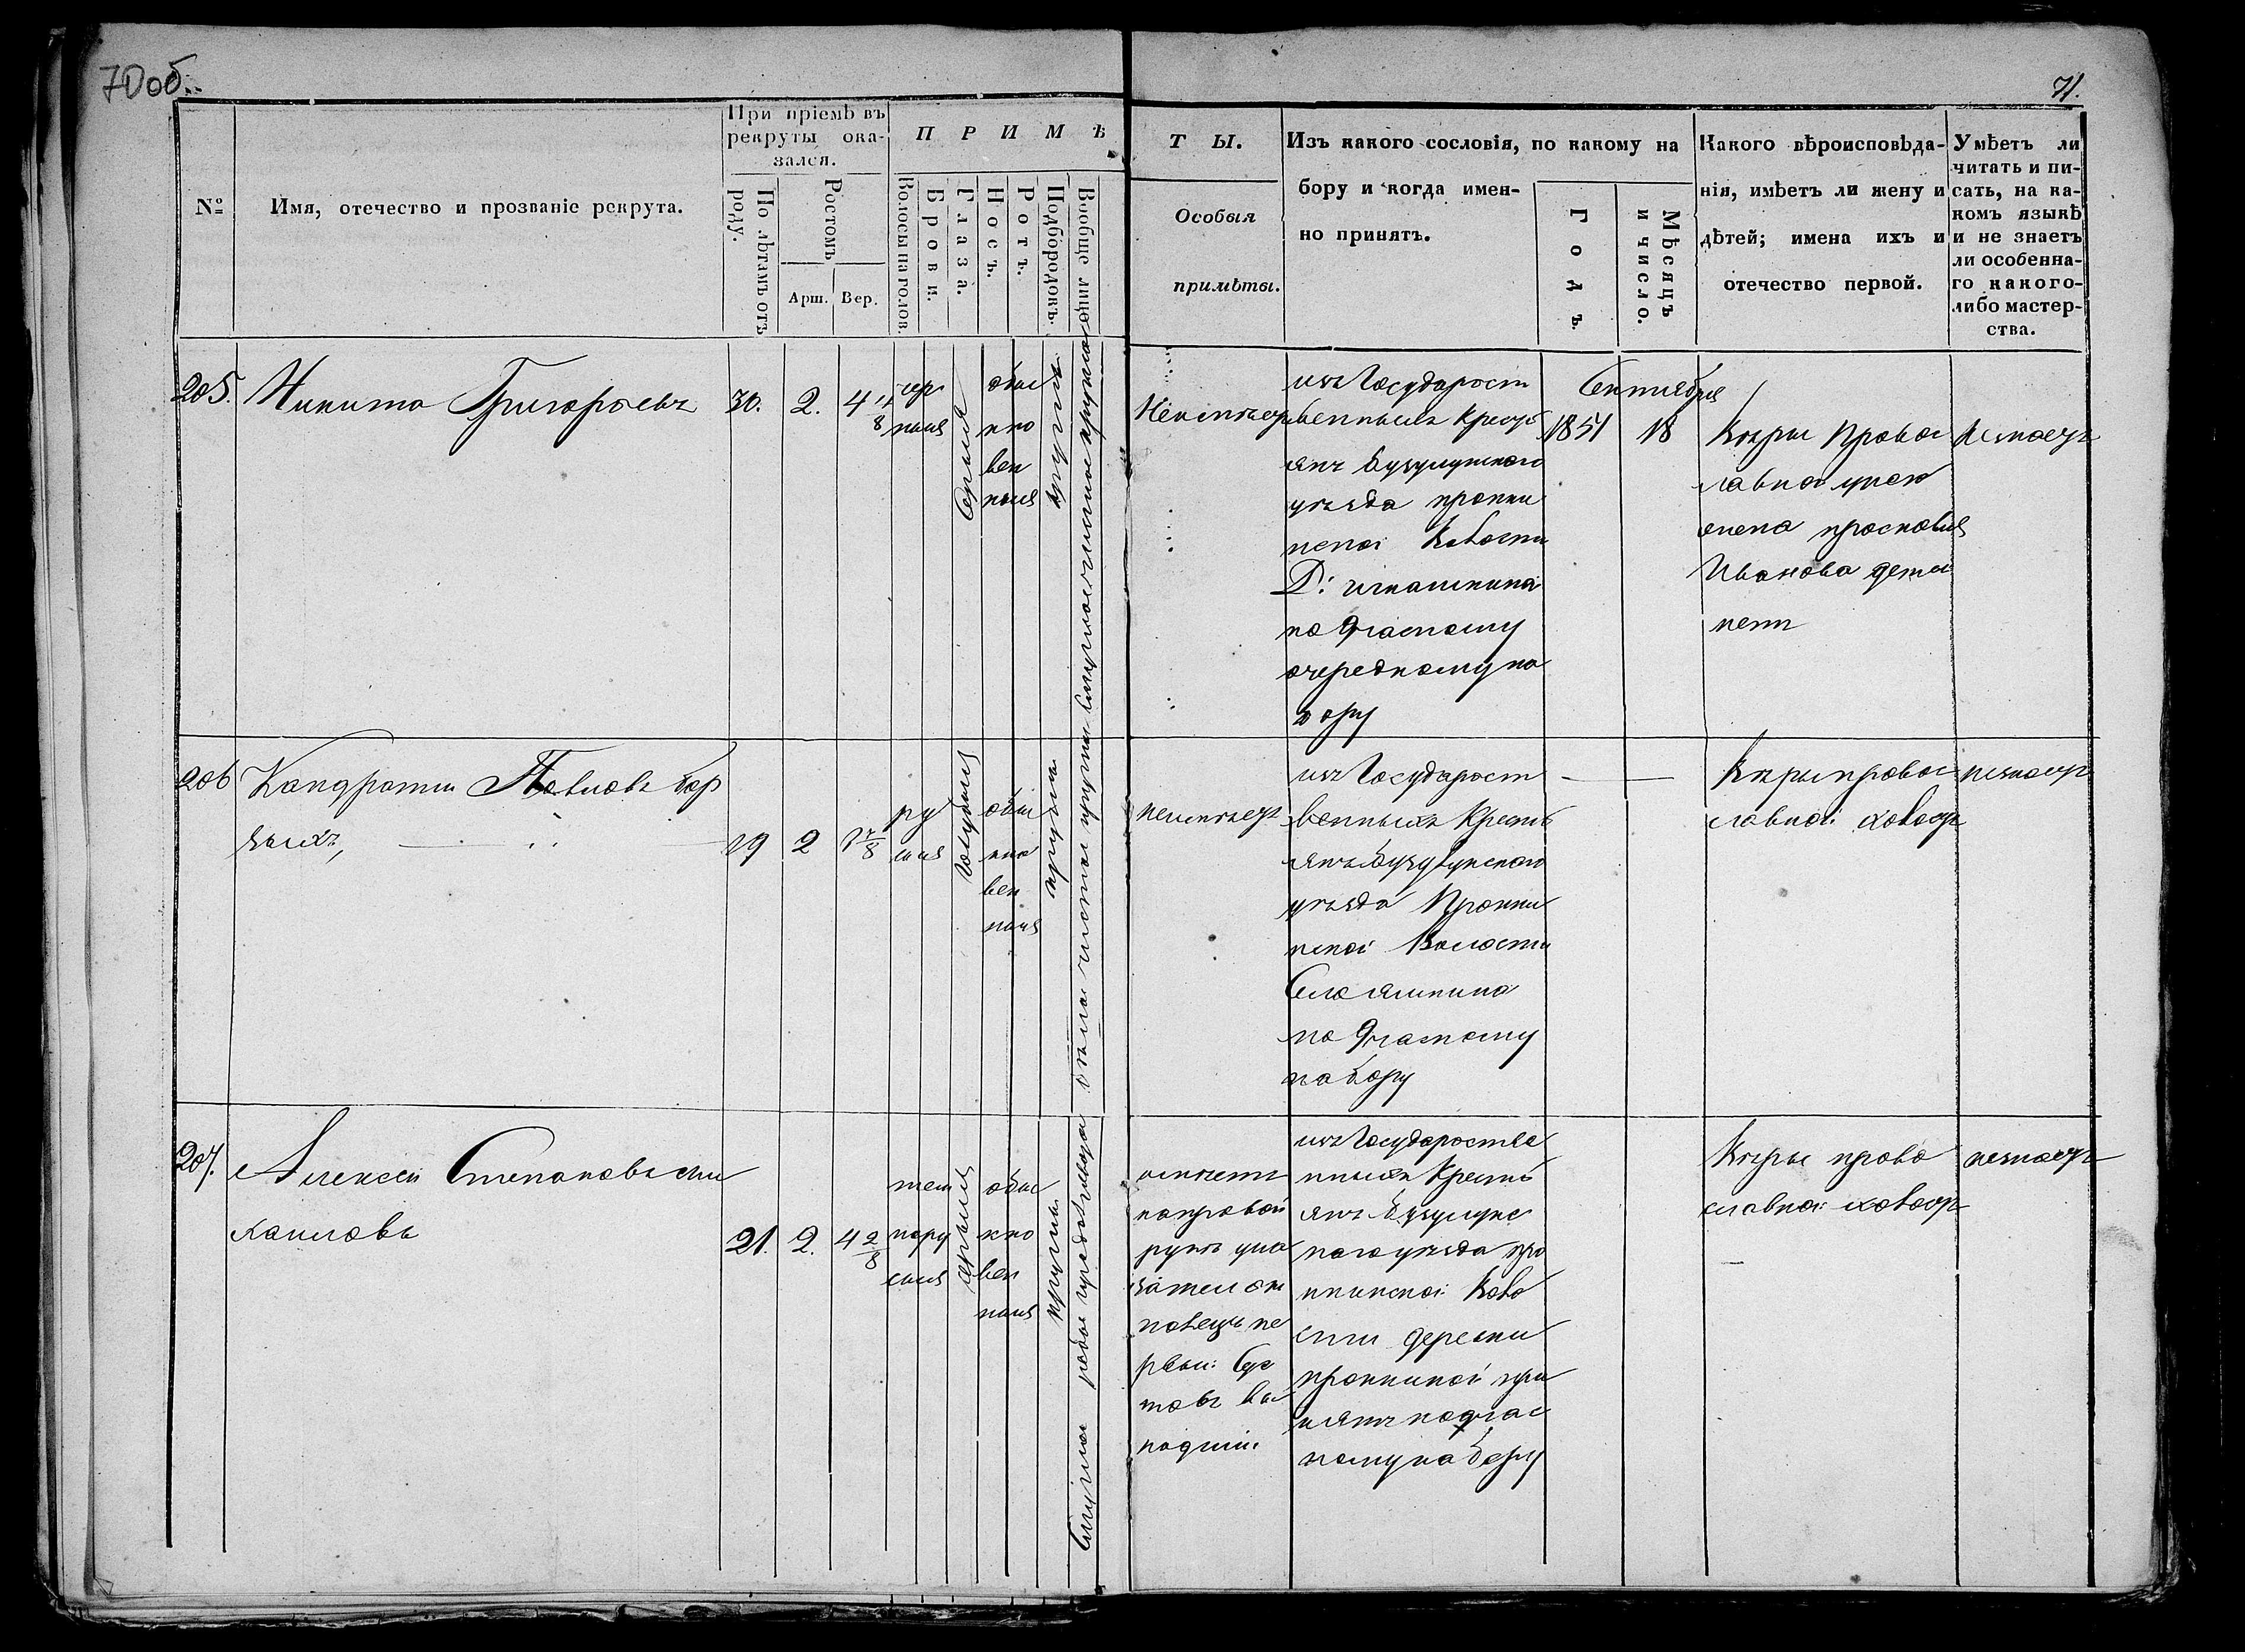 70 об.
71.
№
Имя, отечество и прозваніе рекрута.
При пріемѣ въ
рекруты ока-
зался.
По лѣтамъ отъ
роду.
Ростомъ
Арш.
Вер.
П Р И М Ѣ
Волосы на голов.
Брови.
Глаза.
Носъ.
Ротъ.
Подбородокъ.
Вообще лицо
Т Ы.
Особыя
примѣты.
Изъ какого сословія, по какому на
бору и когда имен-
но принятъ.
Годъ.
Мѣсяцъ
и число.
Какого вѣроисповѣда-
нія, имѣетъ ли жену и
дѣтей; имена ихъ и
отечество первой.
Умѣетъ ли
читать и пи-
сать, на ка-
комъ языкѣ
и не знаетъ
ли особенна-
го какого-
либо мастер-
ства.
205.
Никита Григорьевъ
30.
2.
4
чер
ныя
Серыя
обык
но
вен
ныя
круглы
Неимѣетъ
изъ Государст
венныхъ Кресть
янъ Бузулукского
уѣзда пронки
нской
Д:
по частному
очередному на
бору
Сентября
1851
18
Вѣры Право
славной
жена просковия
Иванова детей
нетъ
Незнаетъ
206
Кандратий Павловъ бор
зыхъ,
19
2
7/8
ру
сыя
голубыя
обык
но
вен
ныя
круглы
неимѣетъ
изъ Государст
венныхъ Кресть
янъ Бузулукского
уѣзда Пронки
нской Волости
Села
по частному
набору
Вѣры право
славной холостъ
незнаетъ
207.
Алексей Степановъ ми
хайловъ
21.
2.
4 2/8
тем
нору
сыя
серыя
обык
но
вен
ныя
круглы
имѣетъ
на правой
руке ука
зател
палецъ пе
рвый Сус
тавъ
изъ Государстве
нныхъ Кресть
янъ Бузулукс
кого уѣзда про
нкинской
деревни
пронкиной при
нятъ по част
ному набору
Вѣры право
славной холостъ
незнаетъ